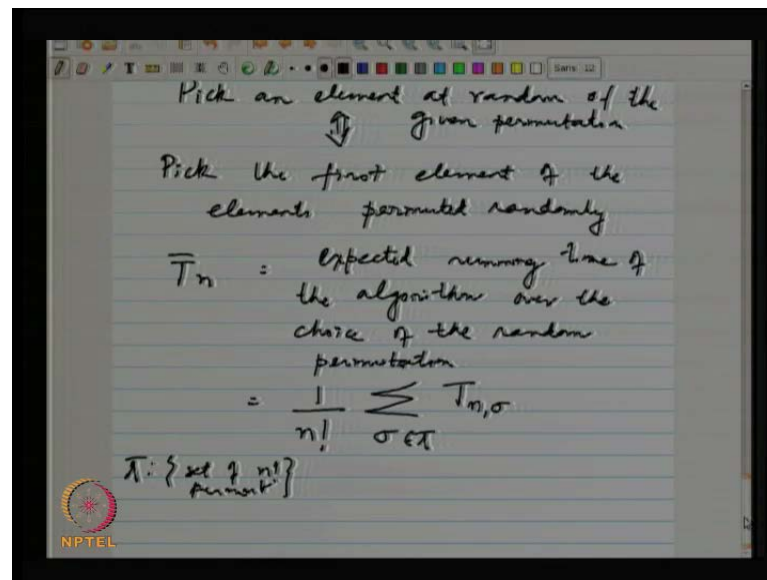 Sans 12
Pick an element at random of the
⇕ given permutation
Pick the first element of the
elements permuted randomly
T̿n : expected running time of
the algorithm over the
choice of the random
permutation
= 1/n! Σ σ∈π Tn,σ
π: { set of n!
permut' }
NPTEL